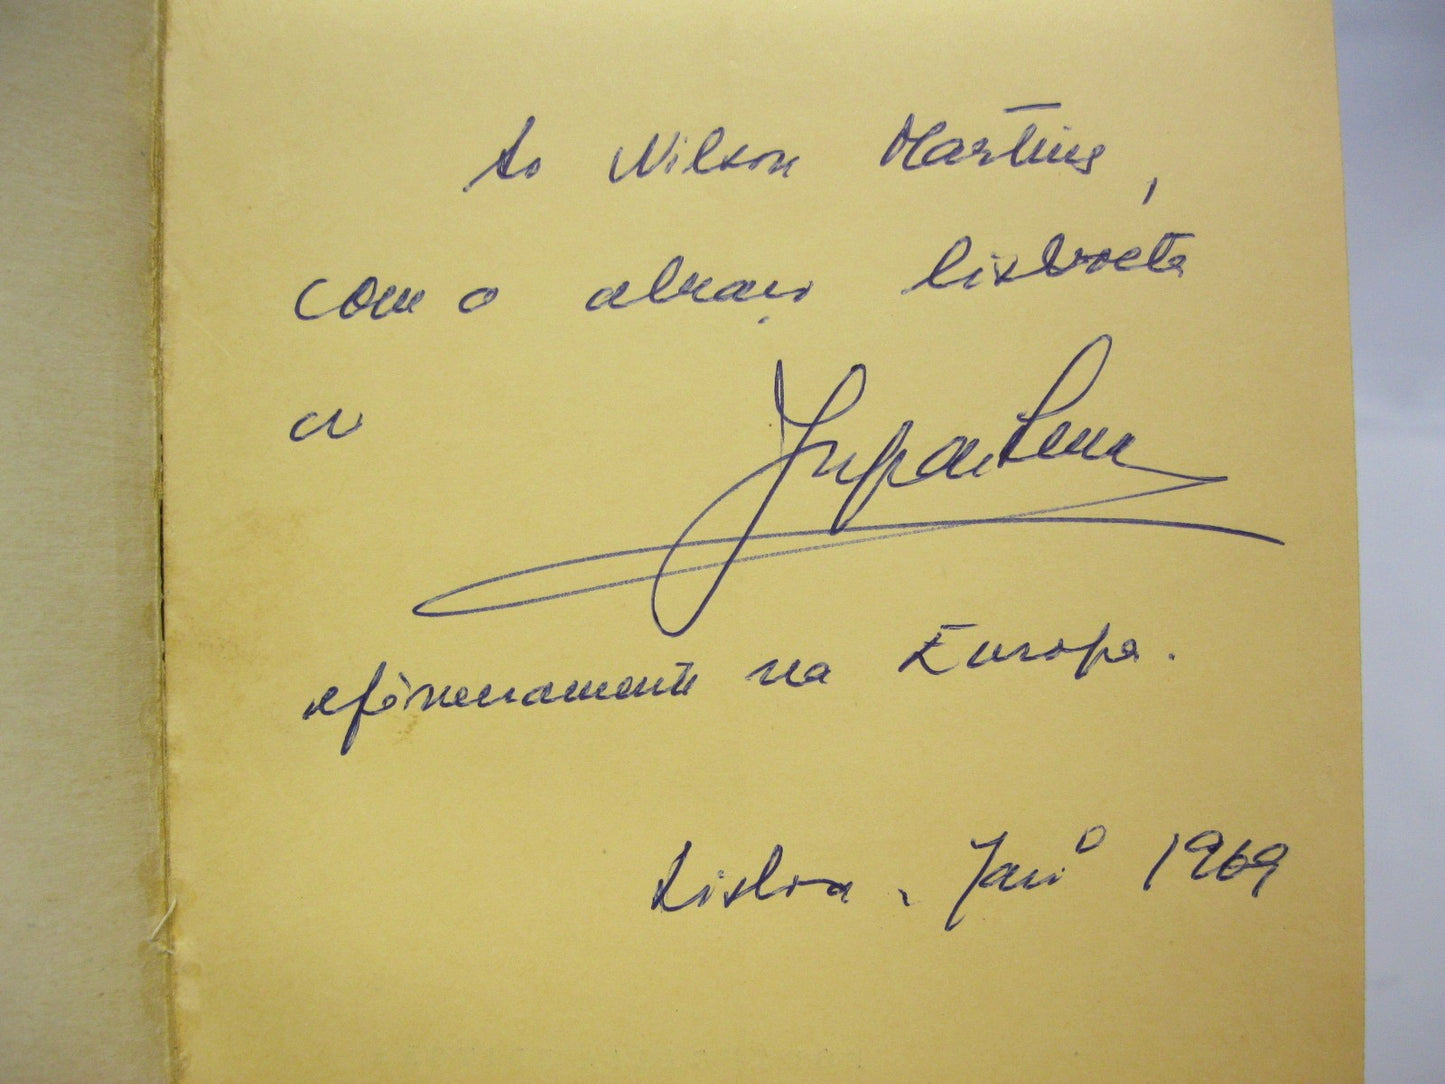 Ao Wilson Martins,
com o abraço lisboeta
do Jorge de Sena
efèmeramente na Europa.
Lisboa, Janº 1969